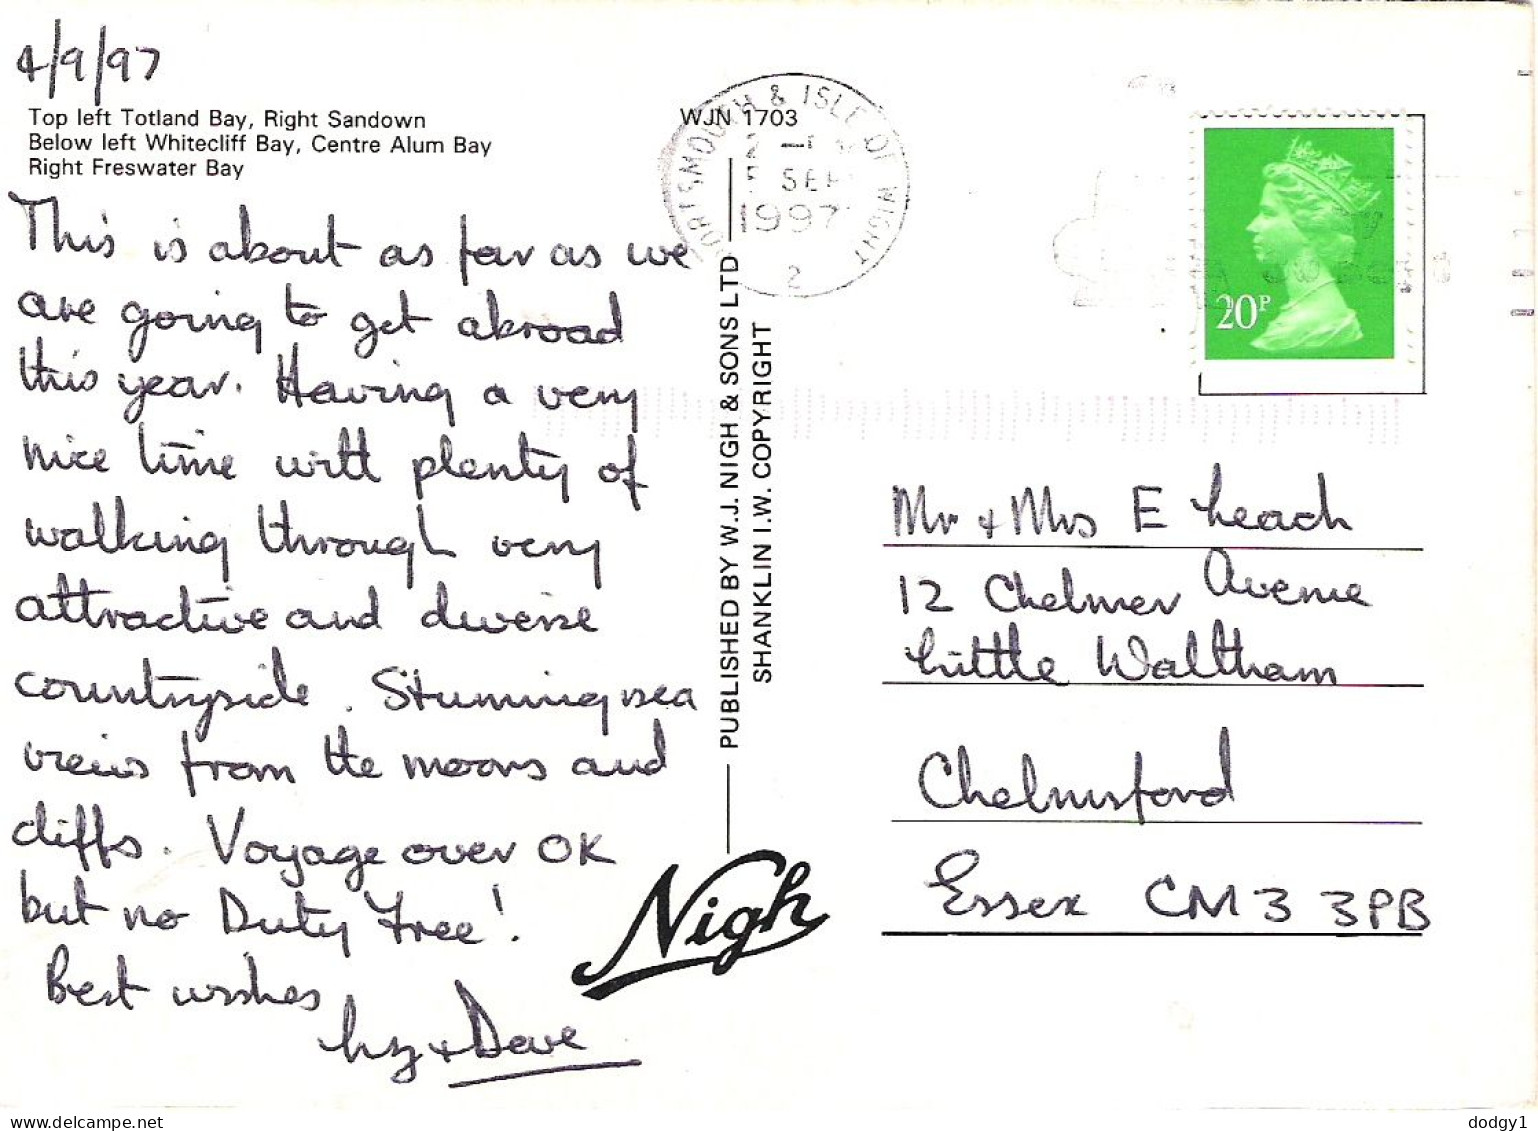 4/9/97
Top left Totland Bay, Right Sandown
Below left Whitecliff Bay, Centre Alum Bay
Right Freswater Bay
This is about as far as we
are going to get abroad
this year. Having a very
nice time with plenty of
walking through very
attractive and diverse
countryside. Stunning sea
views from the moors and
cliffs. Voyage over OK
but no Duty Free!
Best wishes
Liz + Dave
WJN 1703
PUBLISHED BY W.J. NIGH & SONS LTD
SHANKLIN I.W. COPYRIGHT
Nigh
PORTSMOUTH & ISLE OF WIGHT
5 SEP
1997
2
20P
Mr + Mrs E Leach
12 Chelmer Avenue
Little Waltham
Chelmsford
Essex CM3 3PB
delcampe.net
dodgy1